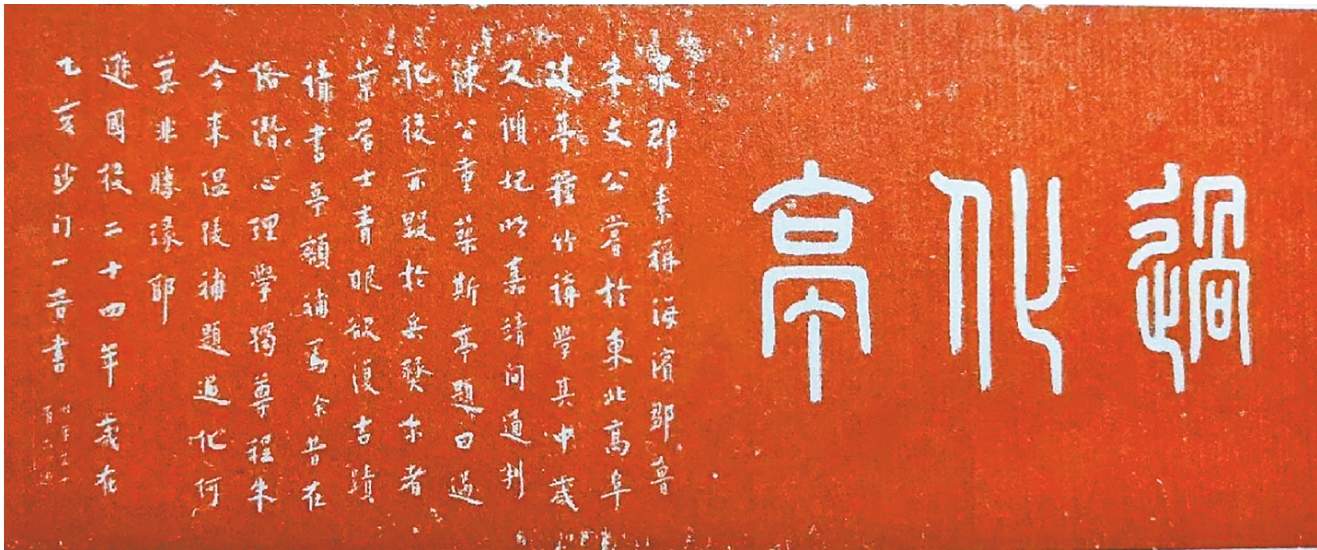 過化亭
泉郡素稱海濱鄒魯
朱文公嘗於東北高阜
建亭種竹講學其中歲
久傾圮明嘉靖間通判
陳公重築斯亭題曰過
化後亦毀於兵燹尒者
葉居士青眼欲復古蹟
倩書亭額補焉余昔在
俗潛心理學獨尊程朱
今來溫陵補題過化何
莫非勝緣耶
遜國後二十四年歲在
乙亥沙門一音書